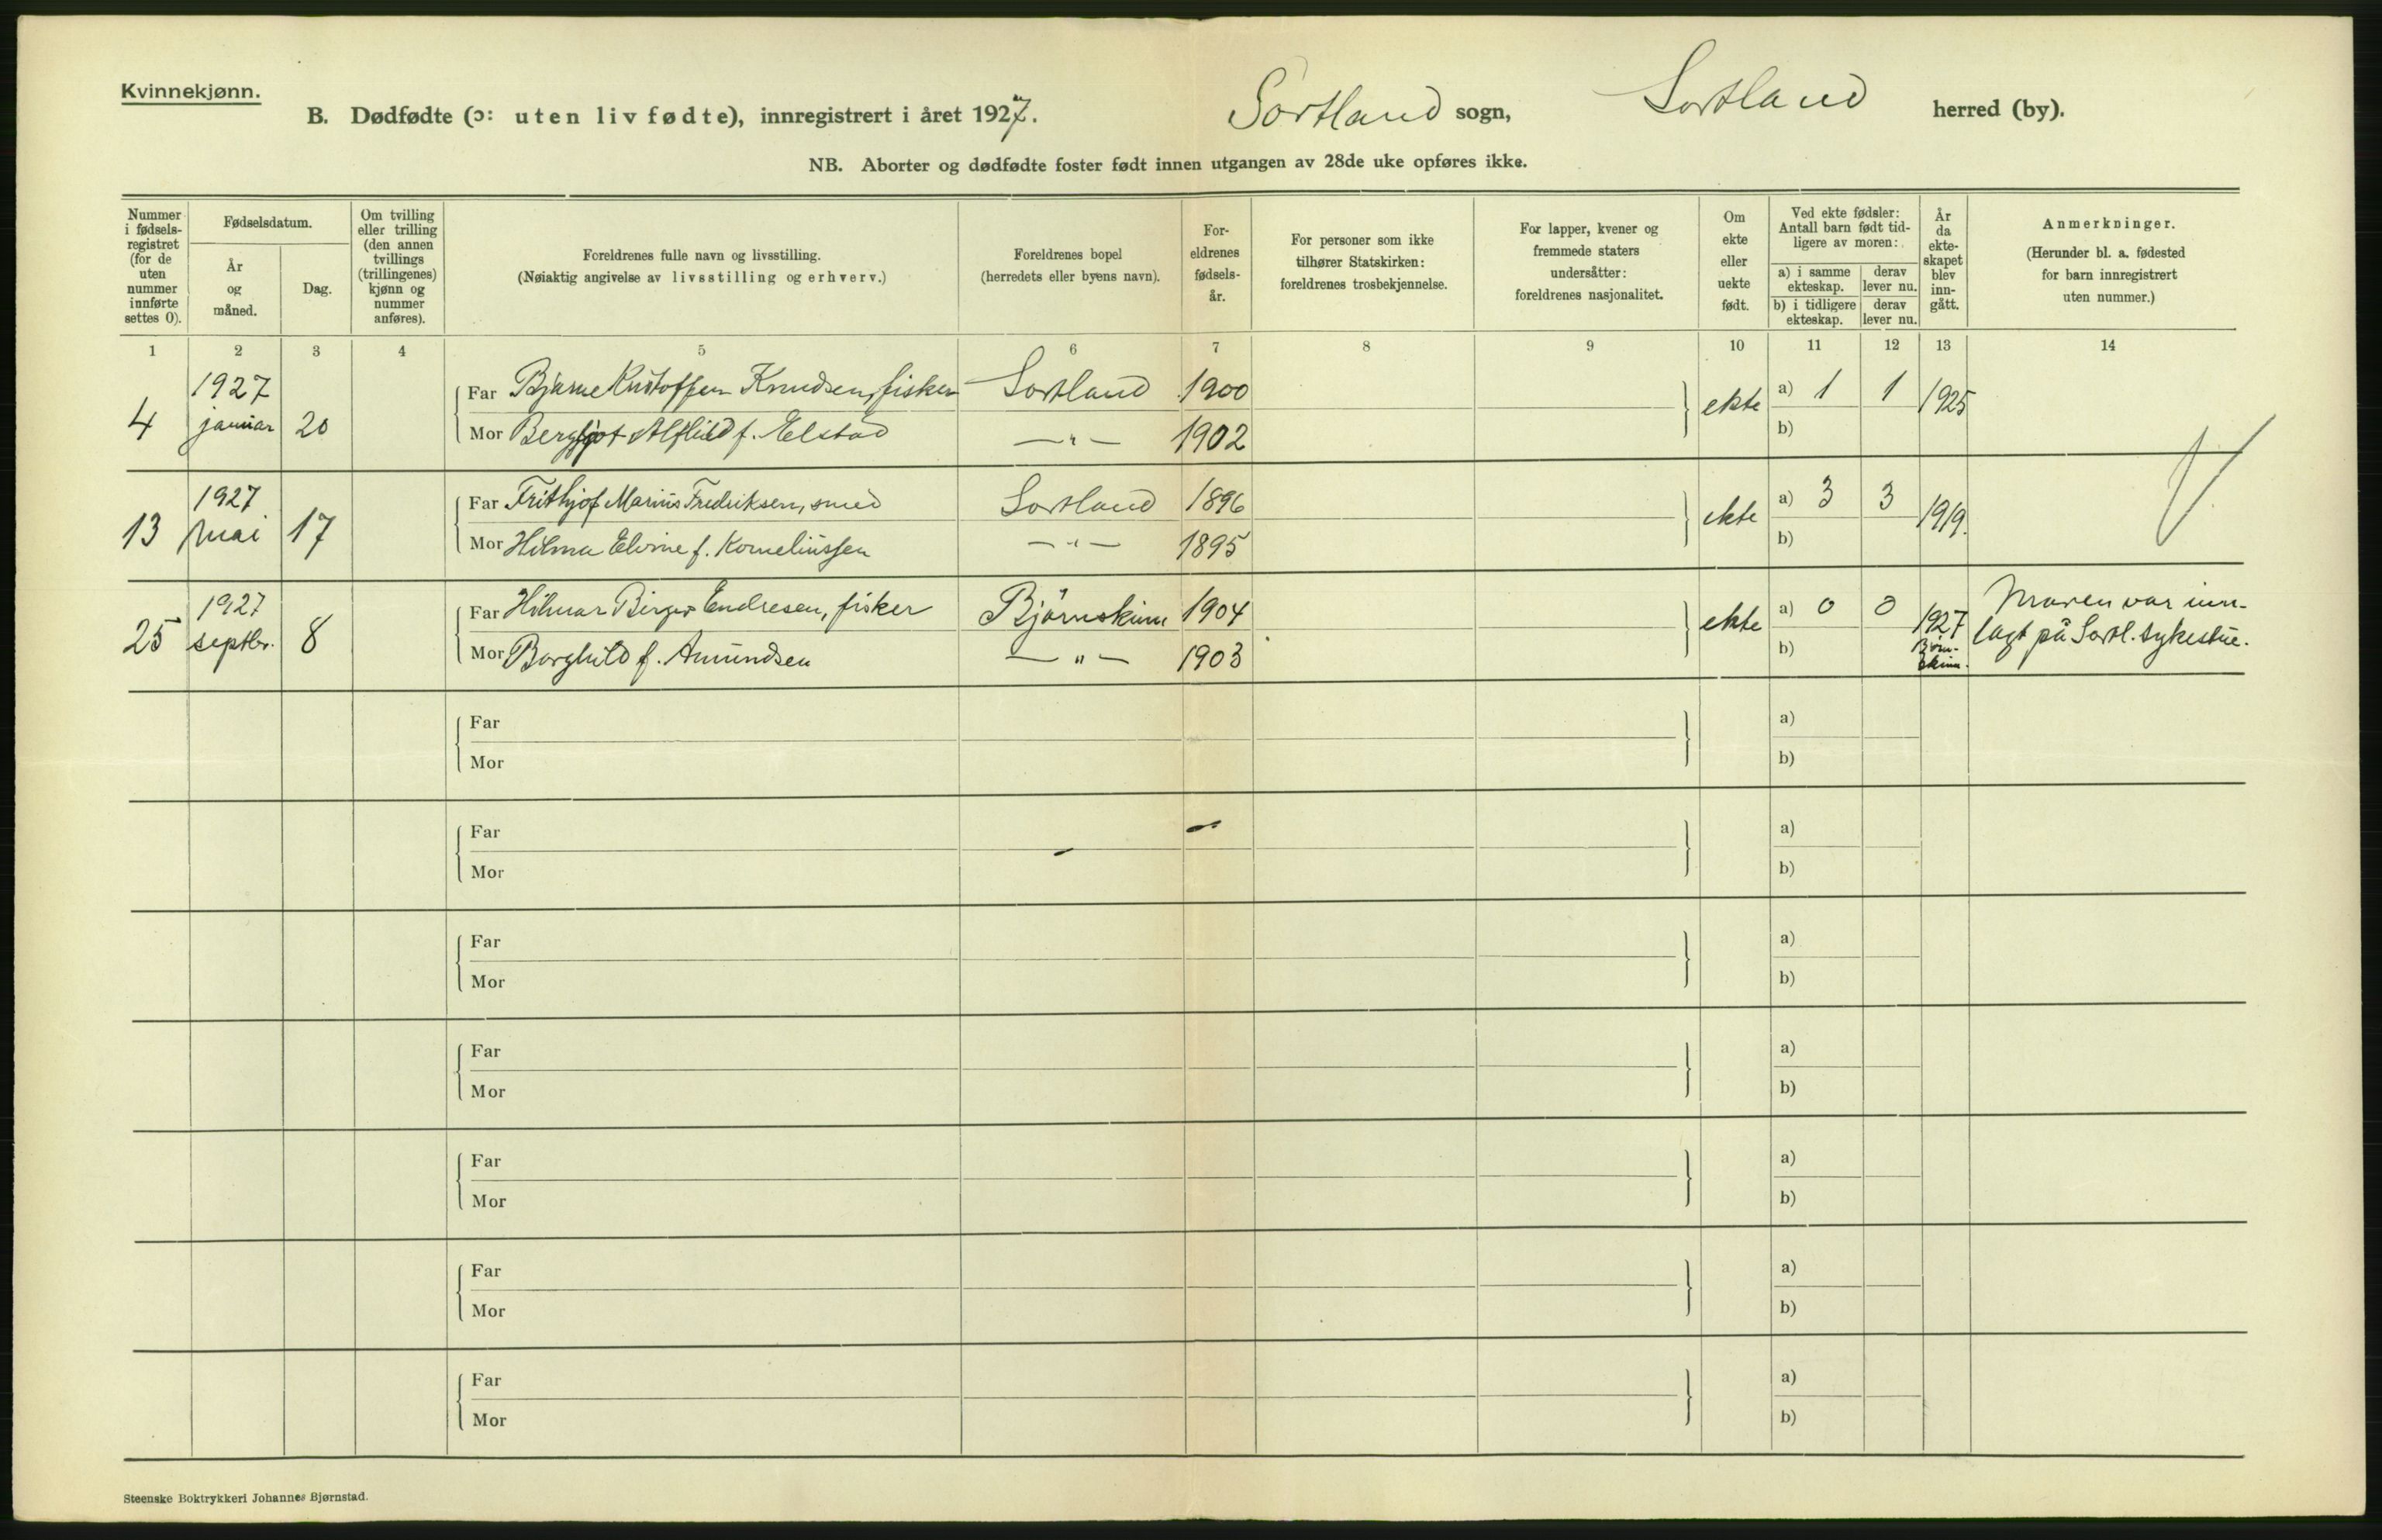 Kvinnekjønn.
B. Dødfødte (ɔ: uten liv fødte), innregistrert i året 1927. Sortland sogn, Sortland herred (by).
NB. Aborter og dødfødte foster født innen utgangen av 28de uke opføres ikke.
Nummer i fødsels-registret (for de uten nummer innførte settes 0).
Fødselsdatum.
År og måned.
Dag.
Om tvilling eller trilling (den annen tvillings (trillingenes) kjønn og nummer anføres).
Foreldrenes fulle navn og livsstilling.
(Nøiaktig angivelse av livsstilling og erhverv.)
Foreldrenes bopel
(herredets eller byens navn).
For-eldrenes fødsels-år.
For personer som ikke tilhører Statskirken: foreldrenes trosbekjennelse.
For lapper, kvener og fremmede staters undersåtter: foreldrenes nasjonalitet.
Om ekte eller uekte født.
Ved ekte fødsler: Antall barn født tid-ligere av moren:
a) i samme ekteskap. derav lever nu.
b) i tidligere ekteskap. derav lever nu.
År da ekte-skapet blev inn-gått.
Anmerkninger.
(Herunder bl. a. fødested for barn innregistrert uten nummer.)
1 2 3 4 5 6 7 8 9 10 11 12 13 14
4 1927 januar 20 Far Bjarne Kristoffer Knudsen, fisker Sortland 1900 ekte a) 1 1 1925
Mor Bergljot Alfhild f. Elstad — " — 1902 b)
13 1927 mai 17 Far Frithjof Marius Fredriksen, smed Sortland 1896 ekte a) 3 3 1919.
Mor Hilma Elvine f. Korneliussen — " — 1895 b)
25 1927 septbr. 8 Far Hilmar Birger Endresen, fisker Bjørnskinn 1904 ekte a) 0 0 1927 Bjørn-skinn. Moren var inn-
Mor Borghild f. Amundsen — " — 1903 b) lagt på Sortl. sykestue.
Far a)
Mor b)
Far a)
Mor b)
Far a)
Mor b)
Far a)
Mor b)
Far a)
Mor b)
Far a)
Mor b)
Far a)
Mor b)
Steenske Boktrykkeri Johannes Bjørnstad.